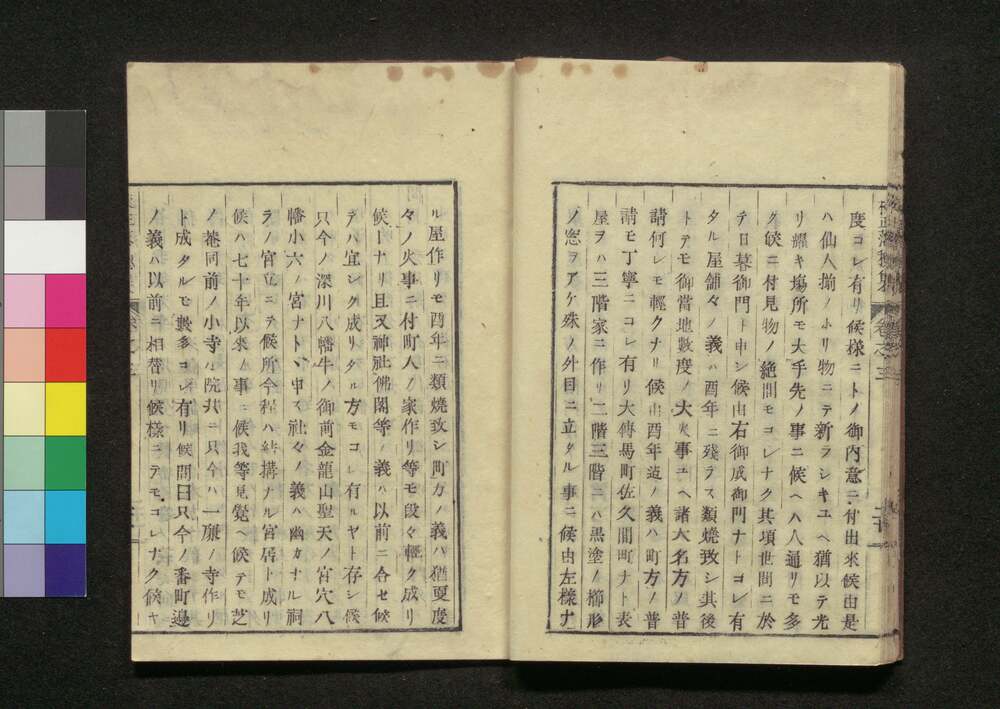 度コレ有リ候様ニトノ御内意ニ付出來候由是
ハ仙人揃ノホリ物ニテ新ラシキユヘ猶以テ光
リ耀キ塲所モ大手先ノ事ニ候ヘハ人通リモ多
ク候ニ付見物ノ絶間モコレナク其頃世間ニ於
テ日暮御門ト申シ候由右御成御門ナトコレ有
タル屋舗々ノ義ハ酉年ニ殘ラス類燒致シ其後
トテモ御當地數度ノ大火事ユヘ諸大名方ノ普
請何レモ輕クナリ候由酉年迠ノ義ハ町方ノ普
請モ丁寧ニコレ有リ大傳馬町佐久間町ナト表
屋ヲハ三階家ニ作リ二階三階ニハ黒塗ノ櫛形
ノ窓ヲアケ殊ノ外目ニ立タル事ニ候由左様ナ
ル屋作リモ酉年ニ類燒致シ町方ノ義ハ猶更度
々ノ火事ニ付町人ノ家作リ等モ段々輕ク成リ
候トナリ且又神社佛閣等ノ義ハ以前ニ合セ候
テハ宜シク成リタル方モコレ有ルヤト存シ候
只今ノ深川八幡牛ノ御前金龍山聖天ノ宮穴八
幡小六ノ宮ナトヽ申ス社々ノ義ハ幽カナル祠
ラノ宮立ニテ候所今程ハ結搆ナル宮居ト成リ
候ハ七十年以來ノ事ニ候我等見覺ヘ候テモ芝
ノ菴同前ノ小寺ハ院共ニ只今ハ一廉ノ寺作リ
ト成タルモ數多コレ有リ候問曰只今ノ番町邊
ノ義ハ以前ニ相替リ候様ニテモコレナク候ヤ